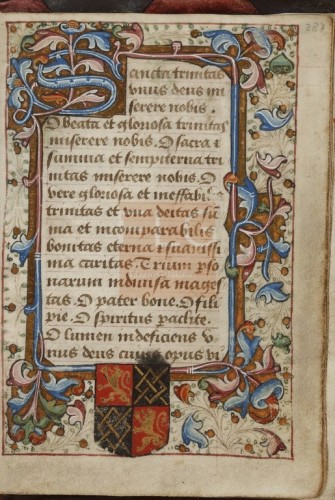 Sancta trinitas
vnus deus mi
serere nobis.
O beata et gloriosa trinitas
miserere nobis. O sacra et
summa et sempiterna tri
nitas miserere nobis. O
vere gloriosa et ineffabi
trinitas et vna deitas sum
ma et incomparabilis
bonitas eterna et suauissi
ma caritas. Trium pso
narum indiuisa mages
tas. O pater bone. O fili
pie. O spiritus paclite.
O lumen indeficiens v
nus deus cuius opus vi